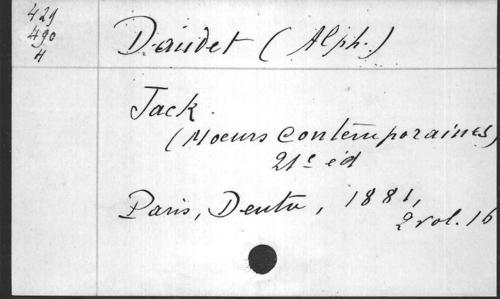 429
490
4
Daudet (Alph.)
Jack.
(Moeurs Contemporaines)
21e éd
Paris, Dentu, 1881,
2 vol. 16